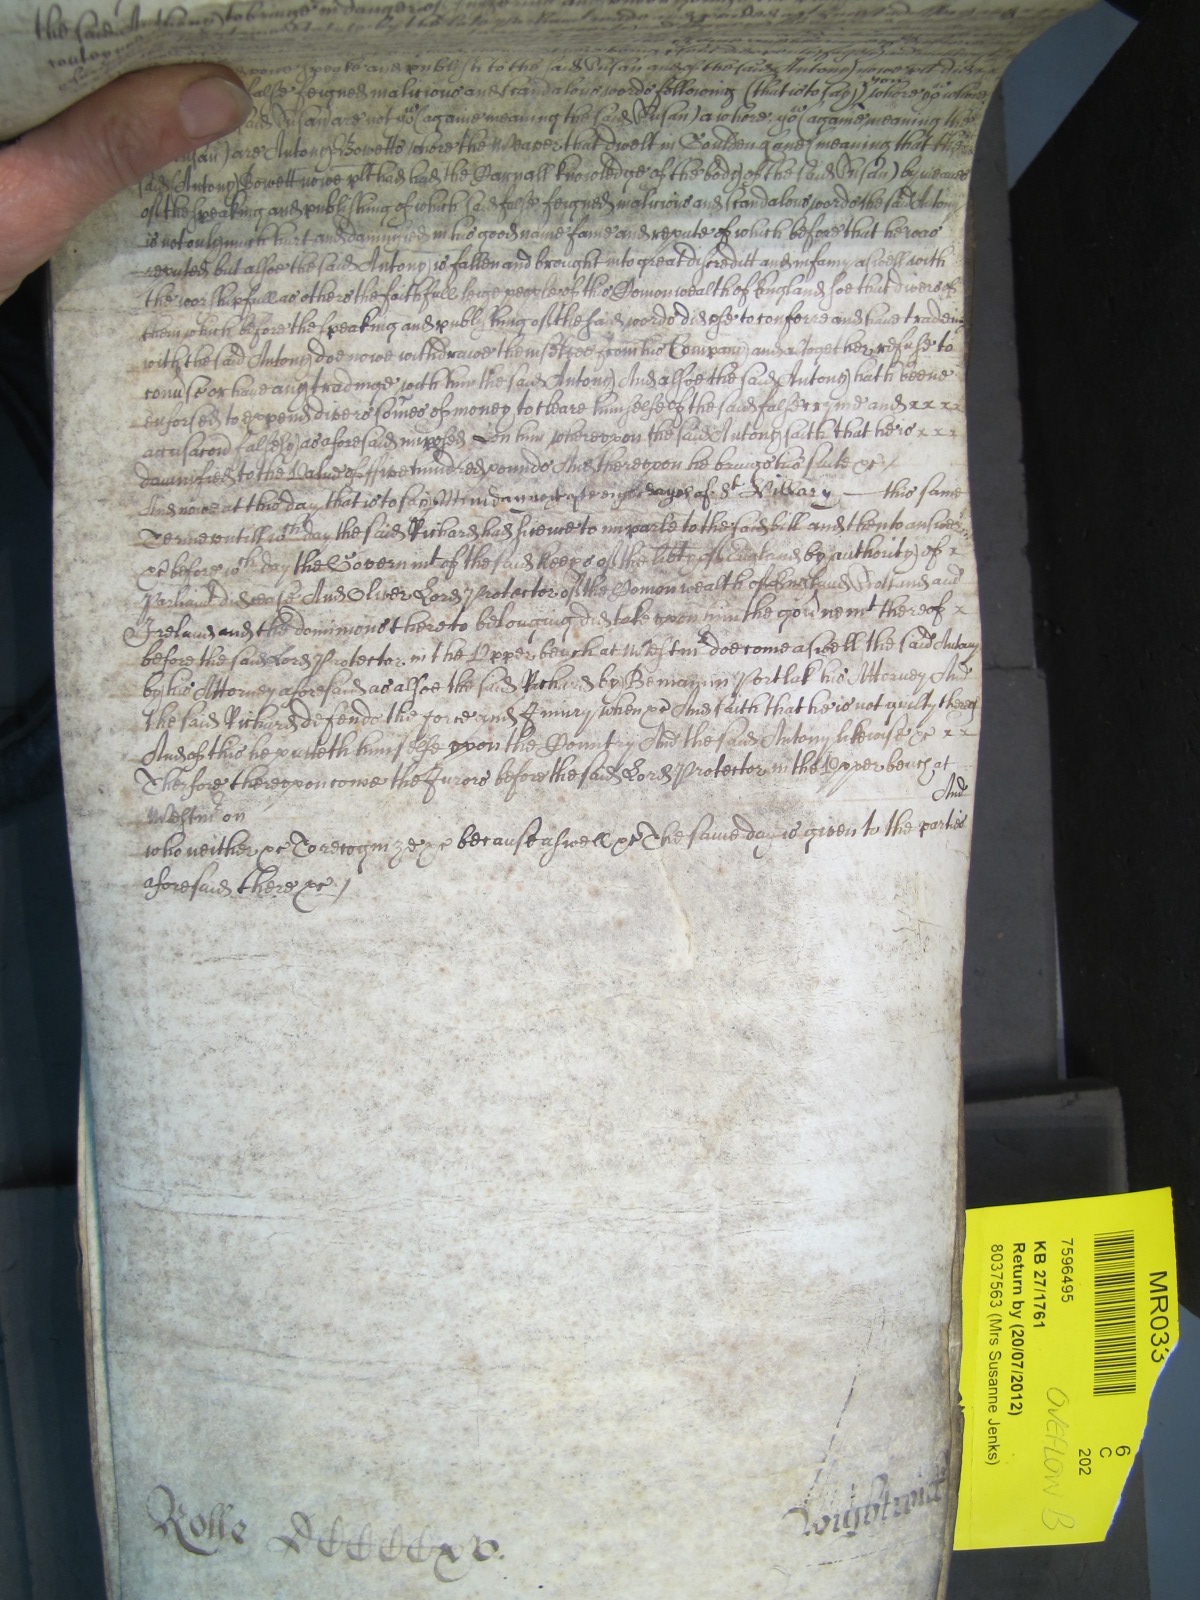 the said Antony to bringe in danger of
speake and publish to the said Susan and of the said Antony nowe plt these
false feigned malicious and scandalous words following (that is to say) you are a whore
said Susan are not yow (agame meaning the said Susan) a whore yow (agame meaning the
Susan) are Antony Bowetts whore the Weaver that dwelt in and meaning that the
said Antony Bowett nowe plt had had the Carnall knowledge of the body of the said Susan) by meanes
of the speaking and publishing of which said false feigned malicious and scandalous words the said Antony
is not onlymuch hurt and damnified in his good name fame and repute of which before that he was
reputed but alsoe the said Antony is fallen and brought into great discreditt and infamy aswell with
the worshipfull as others the faithfull leige people of this Comonwealth of England soe that divers of
them which before the speaking and publishing of the said words did use to conferre and have tradeing
with the said Antony doe nowe withdrawe themselves from his Company and altogether refuse to
comuse or have any tradinge with him the said Antony And alsoe the said Antony hath beene
enforsed to expend divers somes of money to cleare himselfe of the said false cryme and x x x x
accusacon falsely as aforesaid imposed upon him whereupon the said Antony saith that he is x x x
damnified to the Value of ffive hundred pounds And thereupon he brings his suite &c /
And nowe at this day that is to say Munday next after eight dayes of St Hillary this same
Terme untill wch day the said Richard had licence to imparle to the said bill and then to answer
&c before wch day the Governmt of the said keepers of the liberty of England by authority of x
Parliamt did cease And Oliver Lord Protector of the Comonwealth of England Scotland and
Ireland and the dominions thereto belonging did take upon him the governemt thereof x
before the said Lord Protector in the Upper bench at Westm doe come aswell the said Antony
by his Attorney aforesaid as alsoe the said Richard by Beniamin Portlak his Attorney And
the said Richard defends the force and Iniury when &c And saith that he is not guilty thereof
And of this he putteth himselfe upon the Country And the said Antony likewise &c x x
Therfore thereupon come the Jurors before the said Lord Protector in the Upper bench at
Westm on And
who neither &c To recognize &c because aswell &c The same day is given to the parties
aforesaid there &c /
Rolle DCCCCxv.
Wightwick
MR033
6
C
202
7596495
KB 27/1761
Return by (20/07/2012)
8037563 (Mrs Susanne Jenks)
OVEFLOW B